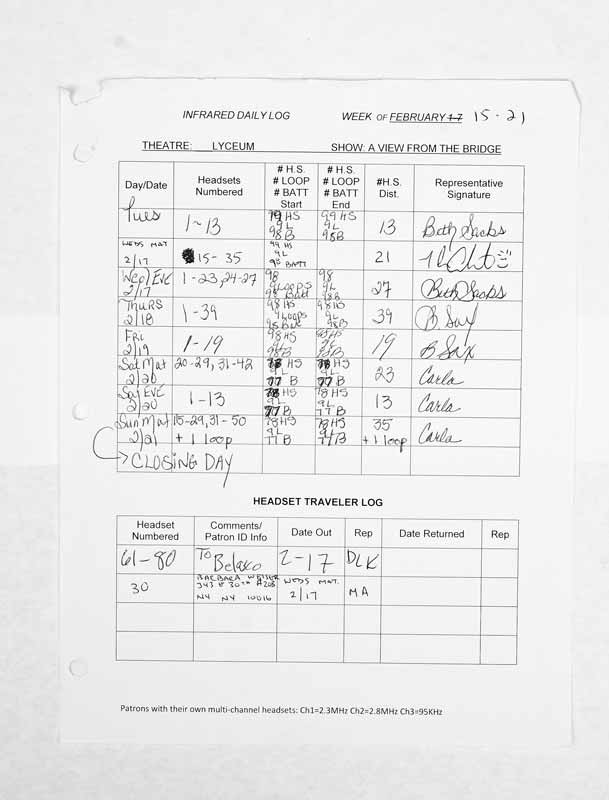 INFRARED DAILY LOG WEEK OF FEBRUARY 1-7 15-21
THEATRE: LYCEUM SHOW: A VIEW FROM THE BRIDGE
Day/Date
Headsets
Numbered
# H.S.
# LOOP
# BATT
Start
# H.S.
# LOOP
# BATT
End
#H.S.
Dist.
Representative
Signature
Tues
1-13
99 HS
9L
98B
99 HS
9L
98B
13
Beth Sachs
WEDS MAT
2/17
15-35
99 HS
9L
98 BATT
21
Wed/EVE
2/17
1-23,24-27
98
9 LOOPS
98 Batt
98
9L
98B
27
Beth Sachs
THURS
2/18
1-39
98HS
9 Loops
98HS
9L
98B
39
FRI
2/19
1-19
98HS
9L
98B
9L
98B
19
B Sax
Sat Mat
2/20
20-29,31-42
78 HS
9L
77 B
78 HS
9L
77 B
23
Carla
Sat EVE
2/20
1-13
78 HS
9L
77B
78HS
9L
77B
13
Carla
Sun Mat
2/21
15-29,31-50
+1 loop
78HS
9L
77B
78HS
9L
77B
35
+1 loop
Carla
CLOSING DAY
HEADSET TRAVELER LOG
Headset
Numbered
Comments/
Patron ID Info
Date Out
Rep
Date Returned
Rep
61-80
To
Belasco
2-17
DLK
30
BARBARA
343 E 30TH #20B
NY NY 10016
WEDS MAT.
2/17
MA
Patrons with their own multi-channel headsets: Ch1=2.3MHz Ch2=2.8MHz Ch3=95KHz